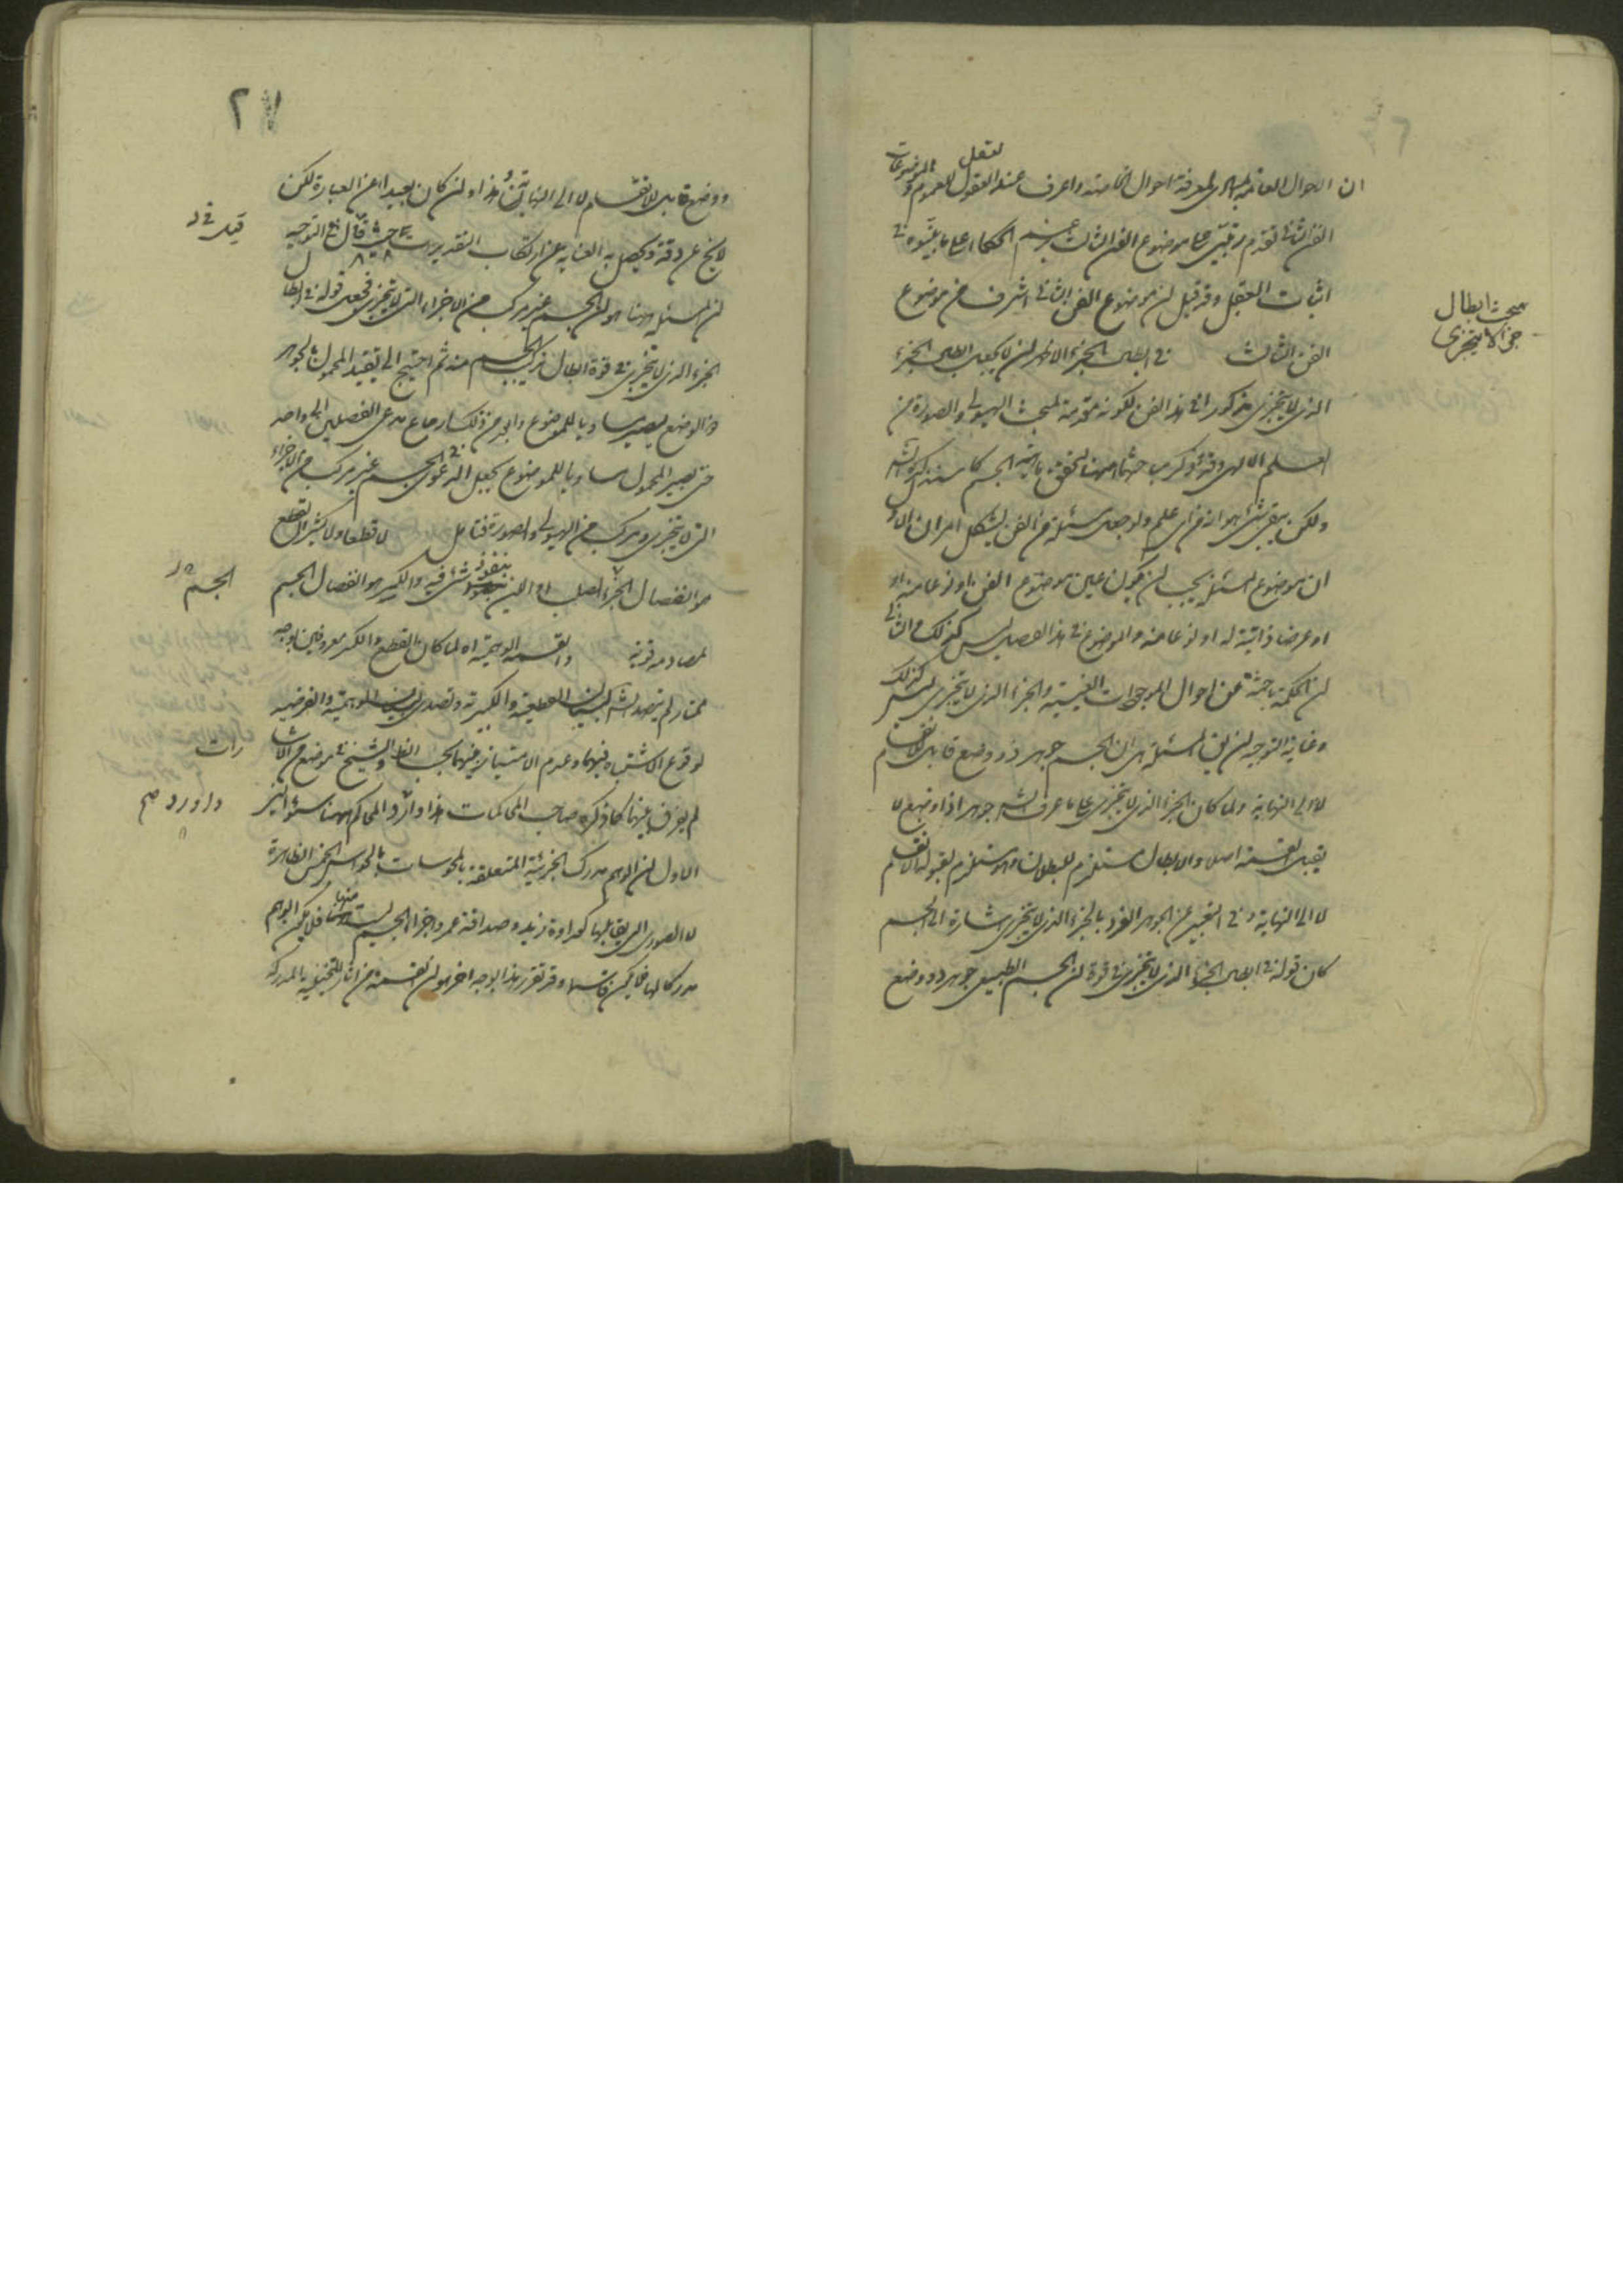 ان الاحوال العامة مبادى لمعرفة احوال الخاصة واعرف عند العقول للعموم
لتعقل
الموضوعات
الفن الثانى تقدم رتبى على موضوع الفن الثالث عند الحكماء على ما بينوه فى
اثبات العقل وقد قيل ان موضوع الفن الثانى اشرف من موضوع
مبحث ابطال
جزء لا يتجزى
الفن الثالث فى ابطال الجزء الاظهر ان لا يجعل ابطال الجزء
الذى لا يتجزى مذكورا فى هذا الفن لكونه مقدمة لمبحث الهيولى والصورة من
العلم الالهى وقد ذكرت ههنا لتحقق ماهية الجسم كما ستذكره
ولكن بقى شئ هو انه من اى علم ولو جعل مسئلة من الفن يشكل امران الاول
ان موضوع المسئلة يجب ان يكون عين موضوع الفن او نوعا منه او
او عرضا ذاتيا له او نوعا منه والموضوع فى هذا الفصل ليس كذلك والثانى
ان الحكمة باحثة عن احوال الموجودات العينية والجزء الذى لا يتجزى ليس كذلك
وغاية التوجيه ان يق المسئلة هى ان الجسم جوهر ذو وضع قابل للانقسام
لا الى النهاية ولما كان الجزء الذى لا يتجزى على ما عرف الشه جوهرا ذا وضع لا
يقبل القسمة اصلا والابطال مستلزم للبطلان وهو مستلزم لقبول الانقسام
لا الى النهاية وفى التعبير عن الجوهر الفرد بالجزء الذى لا يتجزى اشارة الى الجسم
كان قوله فى ابطال الجزء الذى لا يتجزى فى قوة ان الجسم الطبيعى جوهر ذو وضع
٢٧
ووضع قابل للانقسام لا الى النهاية هذا وان كان بعيدا عن العبارة لكن
لا يخ عن دقة ويحصل به الغناية عن ارتكاب التقدير قال فى التوجيه
قيل فى
ان المسئلة ههنا هو ان الجسم غير مركب من الاجزاء التى لا تتجزى فجعل قوله فى ابطال
الجزء الذى لا يتجزى فى قوة ابطال تركيب الجسم منه ثم احتيج الى تقييد المحمول بالجوهر
ذو الوضع ليصير مساويا للموضوع وابعد من ذلك ارجاع مدعى الفصلين الى واحد
حتى يصير المحمول مساويا للموضوع بجعل الدعوى الجسم غير مركب من الاجزاء
التى لا تتجزى ومركب من الهيولى والصورة فتامل لا قطعا ولا كسرا القطع
هو انفصال الجزء الصلب او اللين بنفوذ شئ فيه والكسر هو انفصال الجسم
الجسم
لمصادمة قوية والقسمة الوهمية اه لما كان القطع والكسر معروفين بوجه
ممتاز لم يتصد الشه لبيان القطعية والكسرية وتصدى لبيان الوهمية والفرضية
لوقوع الاشتباه فيهما وعدم الامتياز فيهما بحسب الظ والشيخ فى موضع من الاشا
رات
لم يفرق بينهما كما ذكره صاحب المحاكمات هذا واورد المحاكم ههنا سؤالين
واورد صح
الاول ان الوهم مدرك الجزئية المتعلقة بالمحسوسات بالحواس الخمس الظاهرة
لا الصور التى يقابلها كعداوة زيد وصداقة عمرو واجزاء الجسم ليست منها فلا يكن الوهم
مدركا لها فلا يكن قاسما وقد تقرر هذا بوجه اخر هو ان القسمة من اثار المتخيلة المدركة